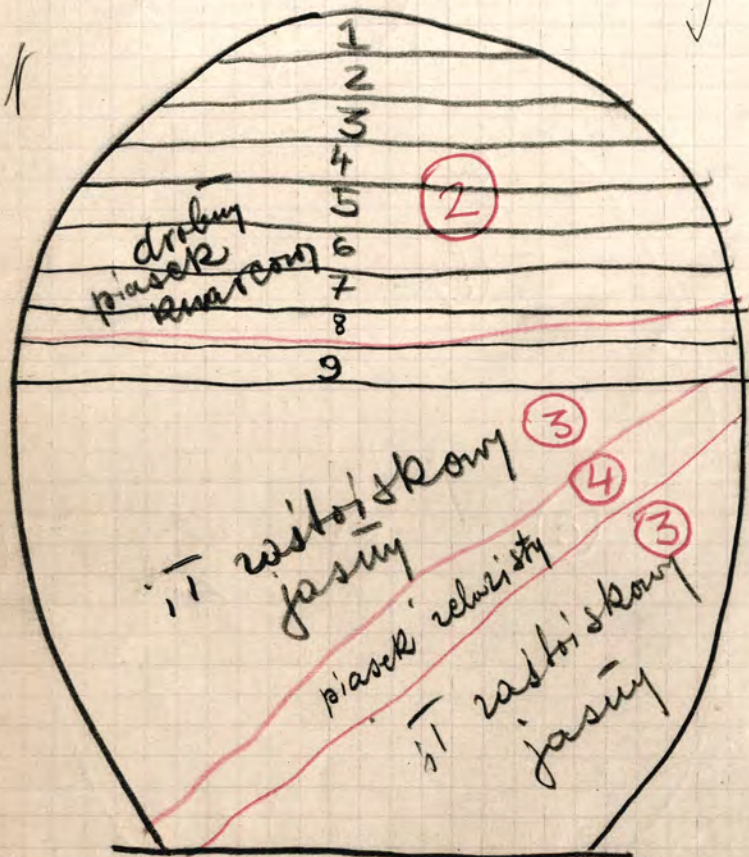 1
2
3
4
5
②
drobny
piasek
kwarcowy
6
7
8
9
③
ił zastoiskowy
jasny
④
piasek żelazisty
③
ił zastoiskowy
jasny